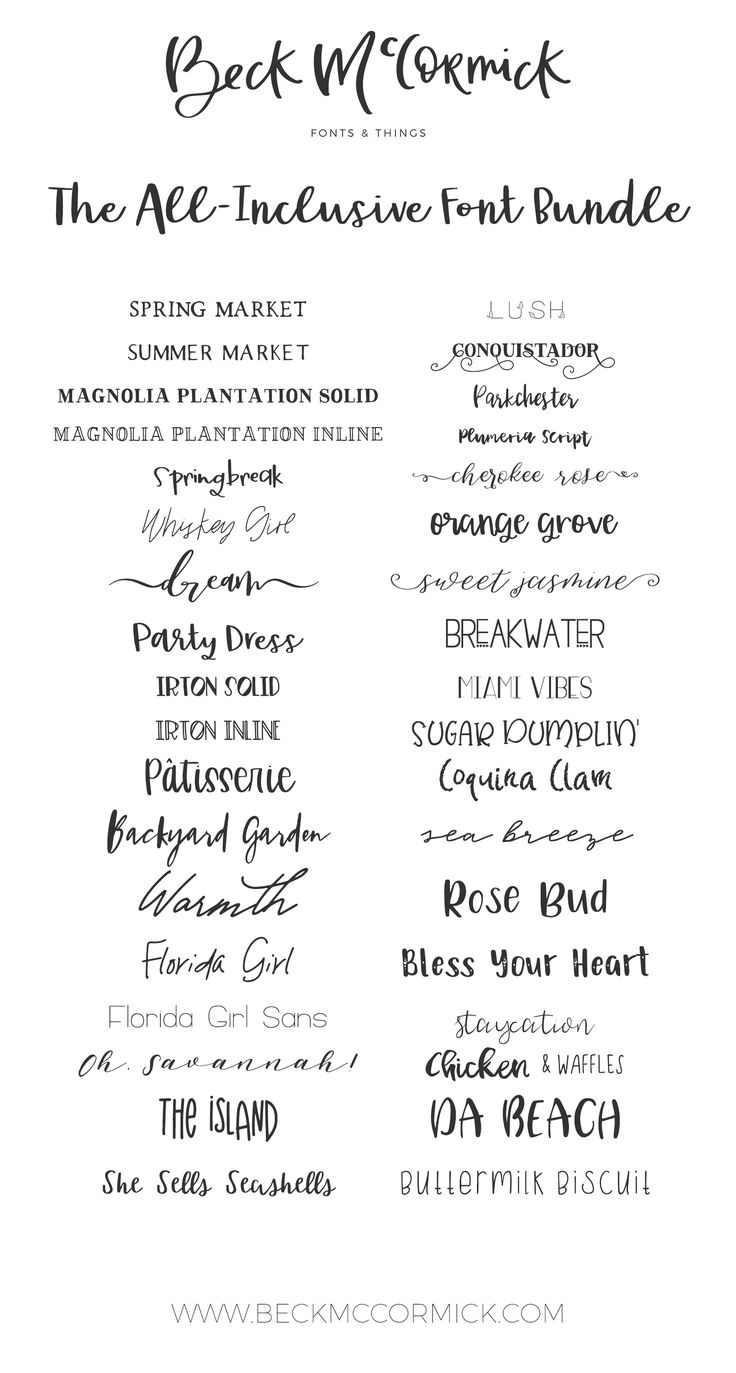 Beck McCormick
FONTS & THINGS
The All-Inclusive Font Bundle
SPRING MARKET
SUMMER MARKET
MAGNOLIA PLANTATION SOLID
MAGNOLIA PLANTATION INLINE
Springbreak
Whiskey Girl
dream
Party Dress
IRTON SOLID
IRTON INLINE
Pâtisserie
Backyard Garden
Warmth
Florida Girl
Florida Girl Sans
Oh, Savannah!
THE iSLAND
She Sells Seashells
LUSH
CONQUISTADOR
Parkchester
Plumeria Script
cherokee rose
orange grove
sweet jasmine
BREAKWATER
MIAMI VIBES
SUGAR DUMPLIN'
Coquina Clam
sea breeze
Rose Bud
Bless Your Heart
staycation
Chicken & WAFFLES
DA BEACH
Buttermilk Biscuit
WWW.BECKMCCORMICK.COM